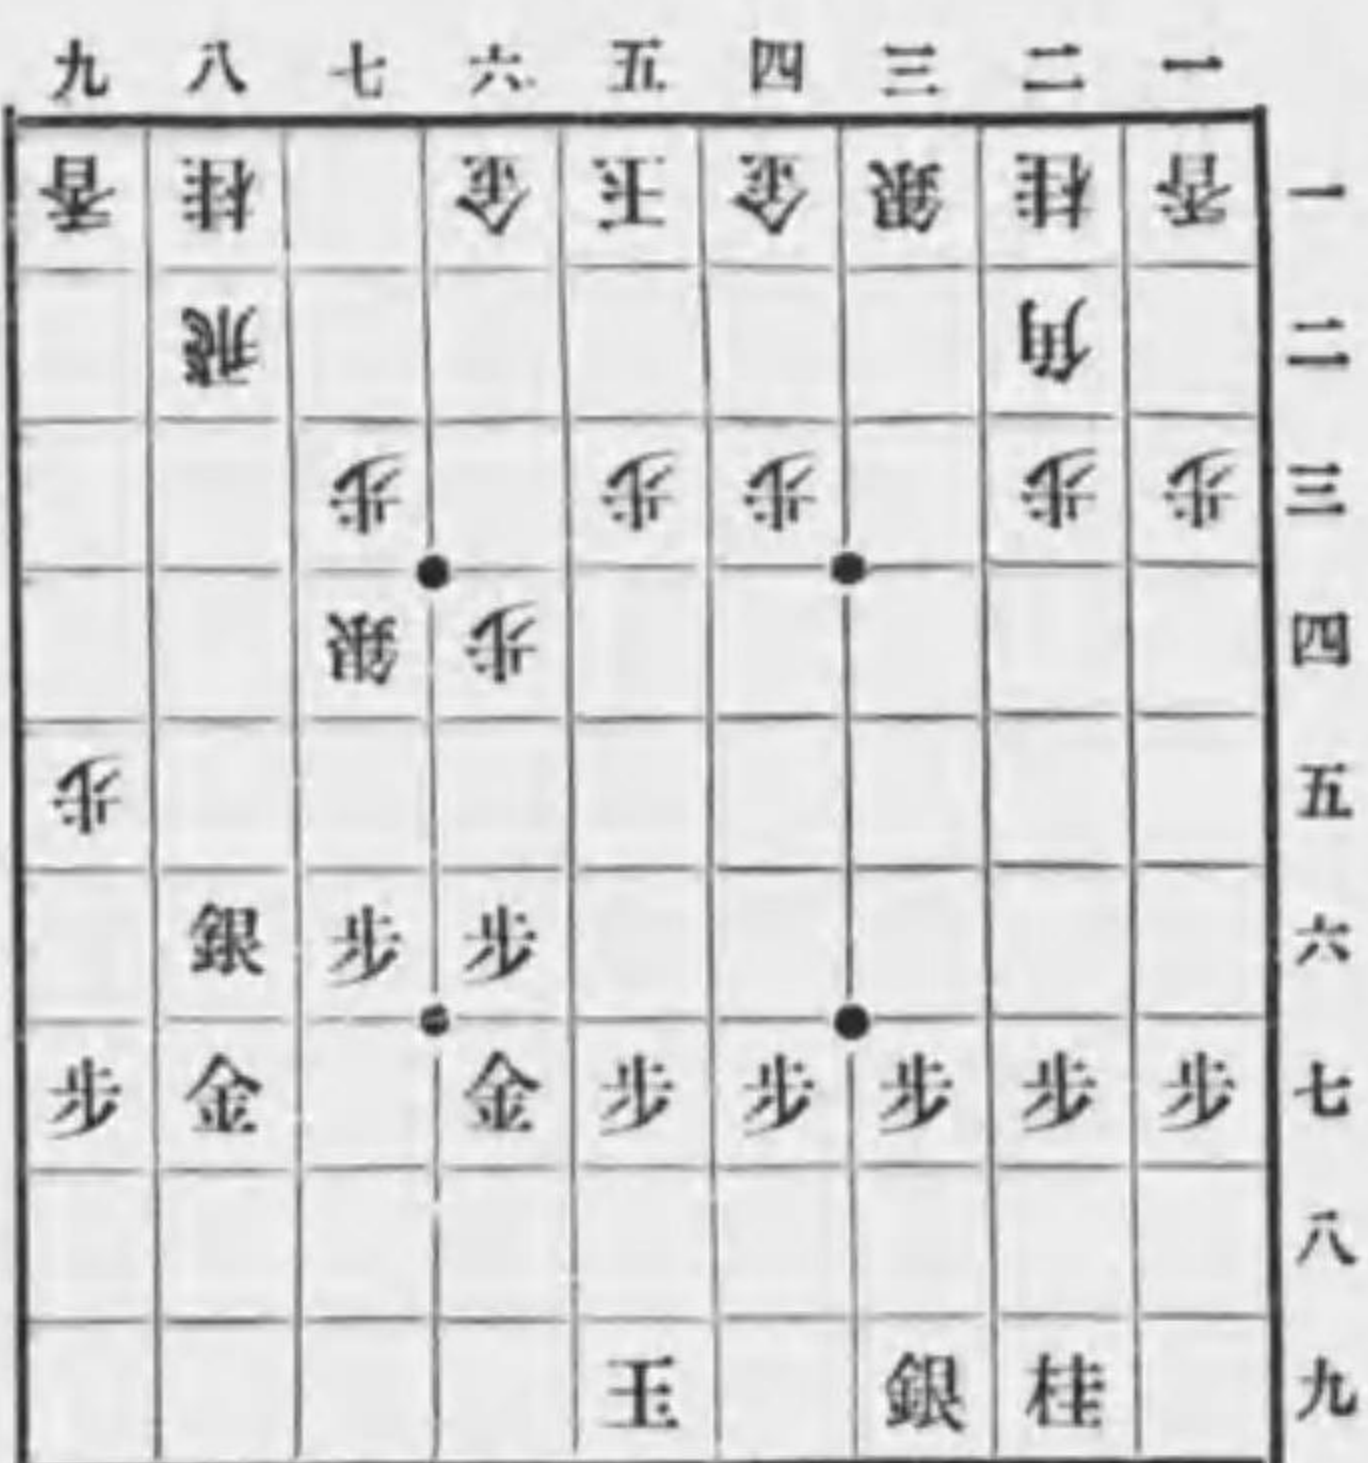 九八七六五四三二一
香桂金玉金銀桂香一
飛角二
歩歩歩歩歩三
銀歩四
歩五
銀歩歩六
歩金金歩歩歩歩歩七
八
玉銀桂九